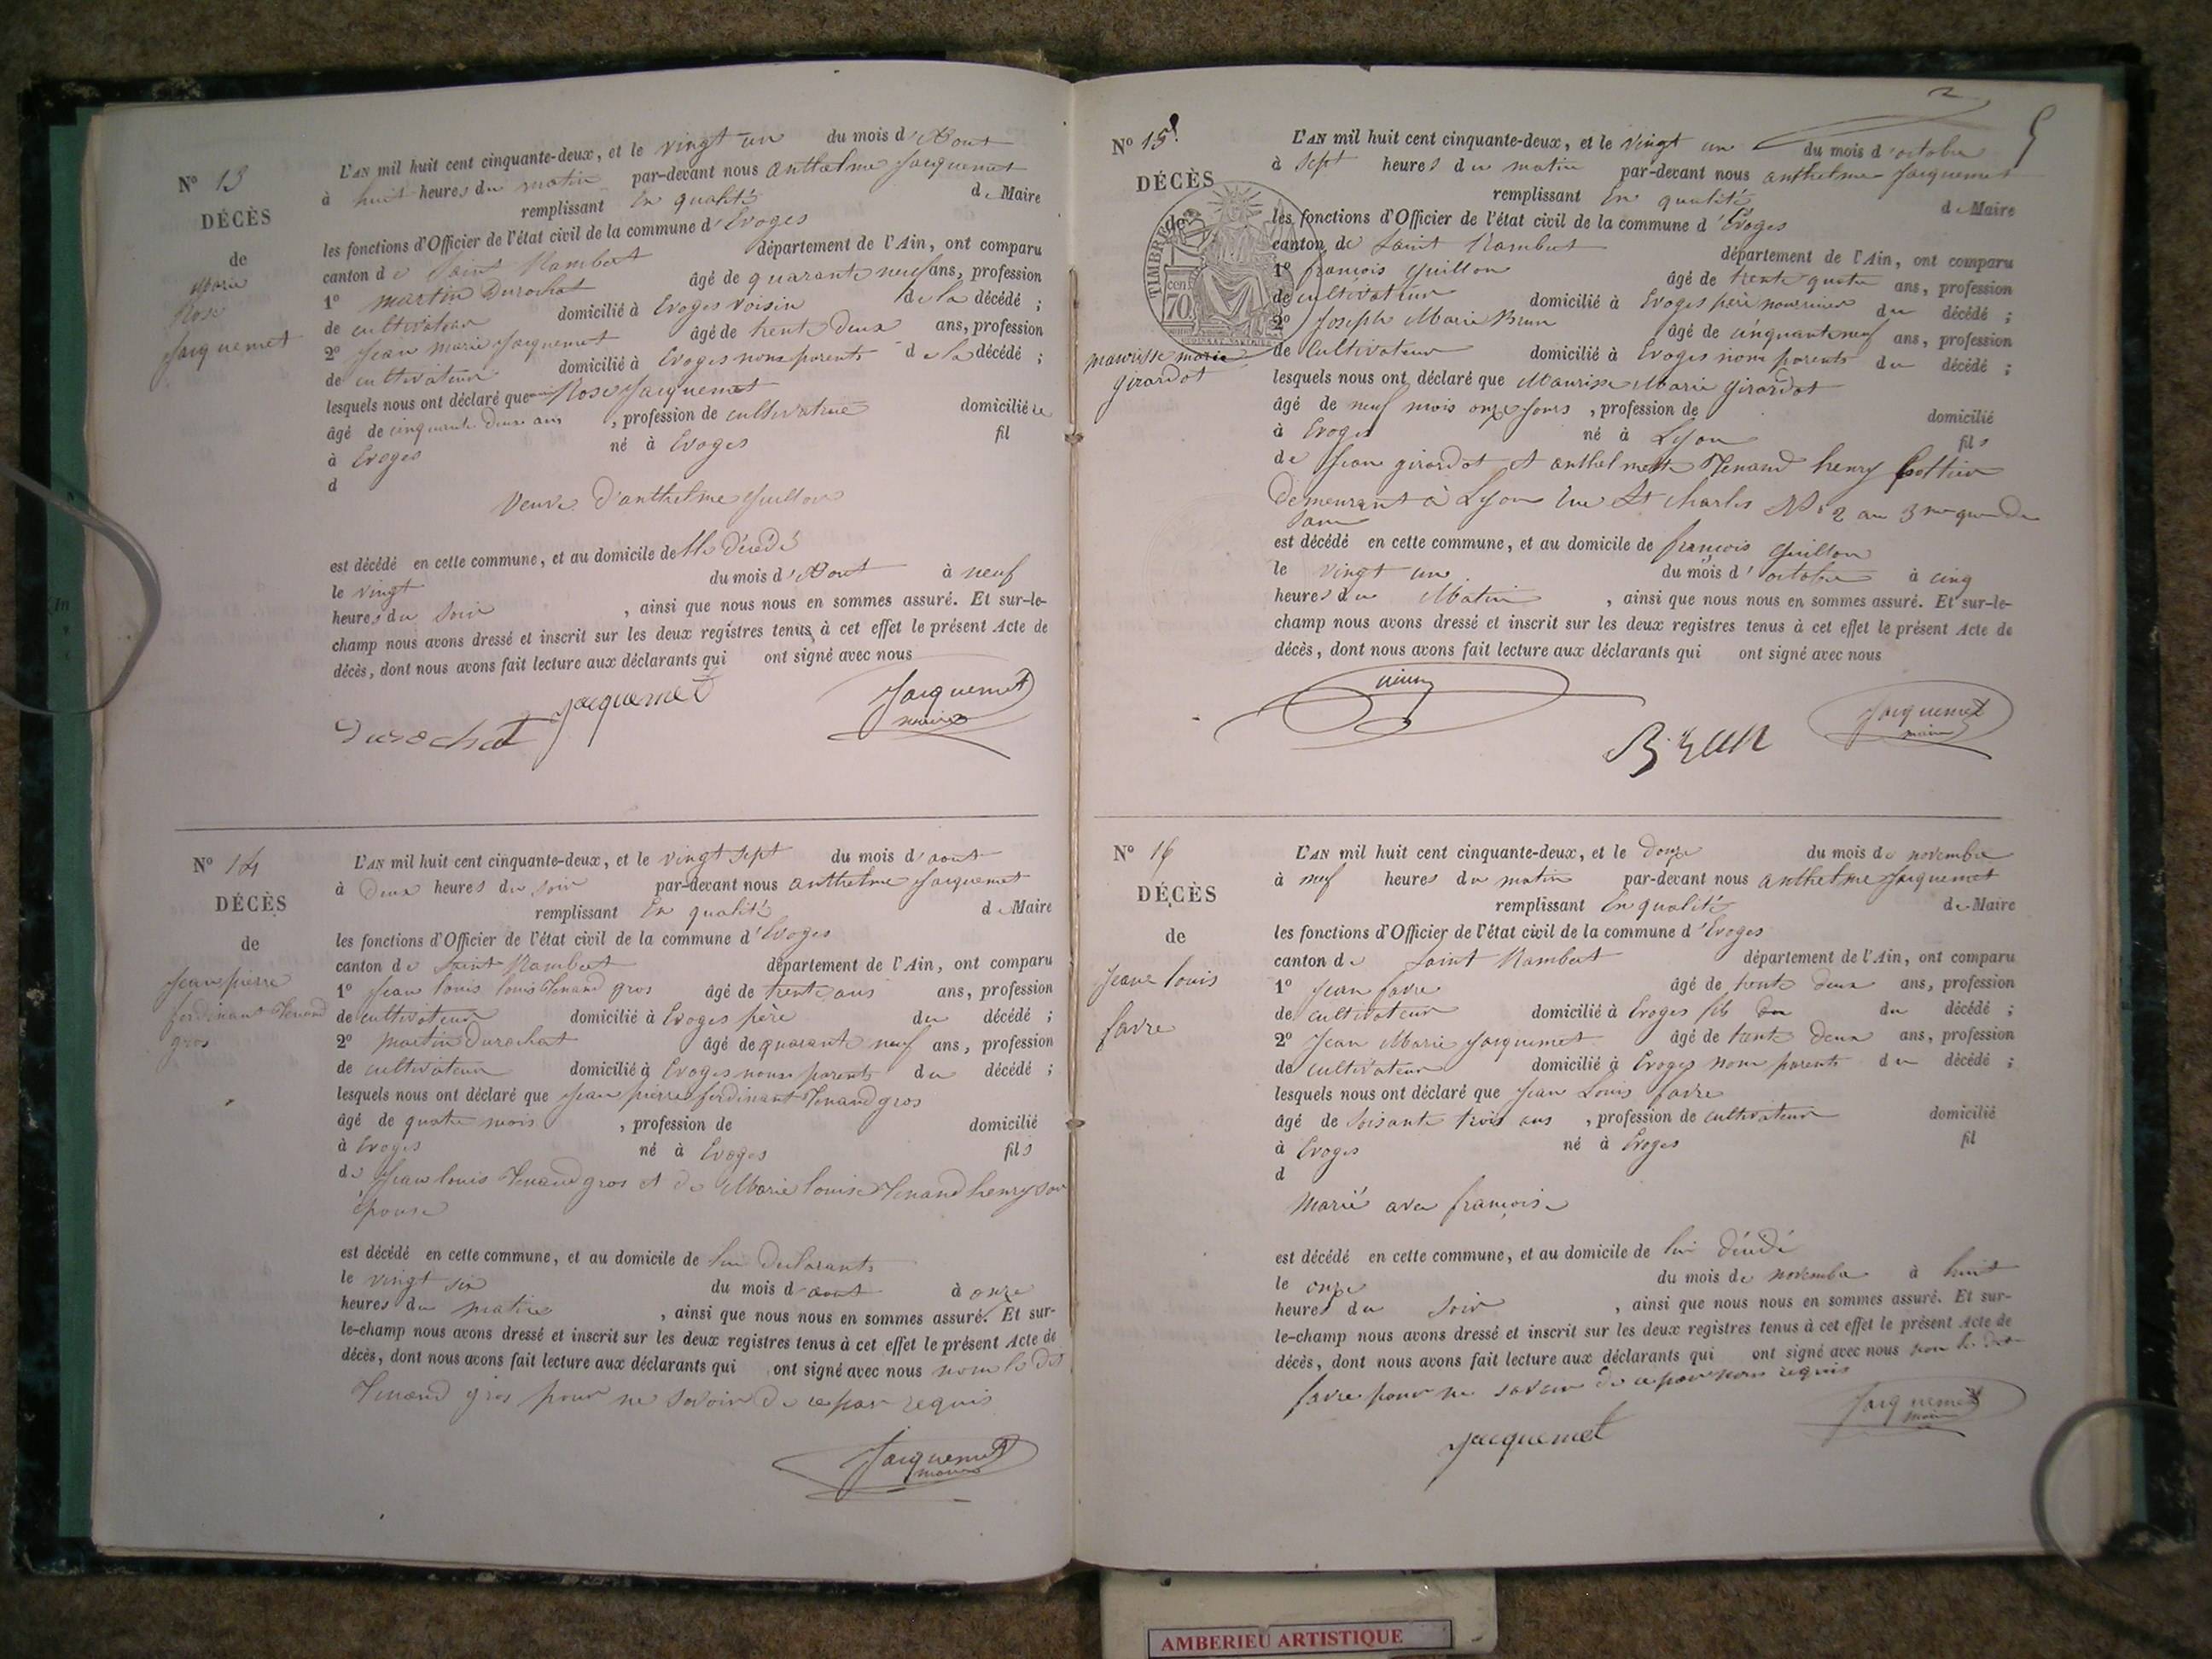 N° 13
DÉCÈS
de
Marie
Rose
Jacquemet
L'AN mil huit cent cinquante-deux, et le vingt un du mois d'Aout
à huit heures du matin par-devant nous anthelme Jacquemet
remplissant En qualité de Maire
les fonctions d'Officier de l'état civil de la commune d'Evoges
canton de Saint Rambert département de l'Ain, ont comparu
1° Martin Durochat âgé de quarante neuf ans, profession
de cultivateur domicilié à Evoges voisin de la décédé ;
2° Jean Marie Jacquemet âgé de trente deux ans, profession
de cultivateur domicilié à Evoges nons parents de la décédé ;
lesquels nous ont déclaré que Rose Jacquemet
âgé de cinquante deux ans , profession de cultivatrice domicilié
à Evoges né à Evoges fil
d
Veuve d'anthelme Guillon
est décédé en cette commune, et au domicile de
le vingt du mois d'Aout à neuf
heures du soir , ainsi que nous nous en sommes assuré. Et sur-le-
champ nous avons dressé et inscrit sur les deux registres tenus à cet effet le présent Acte de
décès, dont nous avons fait lecture aux déclarants qui ont signé avec nous
Durochat Jacquemet Jacquemet
maire
N° 14
DÉCÈS
de
Jean pierre
ferdinant Tenand
gros
L'AN mil huit cent cinquante-deux, et le vingt sept du mois d'aout
à Deux heures du soir par-devant nous anthelme Jacquemet
remplissant En qualité de Maire
les fonctions d'Officier de l'état civil de la commune d'Evoges
canton de Saint Rambert département de l'Ain, ont comparu
1° Jean louis louis Tenand gros âgé de trente ans ans, profession
de cultivateur domicilié à Evoges père du décédé ;
2° Martin Durochat âgé de quarante neuf ans, profession
de cultivateur domicilié à Evoges nons parents du décédé ;
lesquels nous ont déclaré que Jean pierre ferdinant Tenand gros
âgé de quatre mois , profession de domicilié
à Evoges né à Evoges fils
de Jean louis Tenand gros et de Marie louise Tenand henry son
épouse
est décédé en cette commune, et au domicile de lun Declarants
le vingt six du mois d'aout à onze
heures du matin , ainsi que nous nous en sommes assuré. Et sur-
le-champ nous avons dressé et inscrit sur les deux registres tenus à cet effet le présent Acte de
décès, dont nous avons fait lecture aux déclarants qui ont signé avec nous non le dit
Tenand gros pour ne savoir de ce par requis
Jacquemet
maire
N° 15
DÉCÈS
de
TIMBRE
cen.
70.
maurisse marie
girardot
L'AN mil huit cent cinquante-deux, et le vingt un du mois d'octobre
à sept heures du matin par-devant nous anthelme Jacquemet
remplissant En qualité de Maire
les fonctions d'Officier de l'état civil de la commune d'Evoges
canton de Saint Rambert département de l'Ain, ont comparu
1° françois Guillon âgé de trente quatre ans, profession
de cultivateur domicilié à Evoges père nourricier du décédé ;
2° Joseph Marie Brun âgé de cinquante neuf ans, profession
de Cultivateur domicilié à Evoges nons parents du décédé ;
lesquels nous ont déclaré que Maurisse Marie girardot
âgé de neuf mois onze jours , profession de domicilié
à Evoges né à Lyon fils
de Jean girardot et anthelmette Tenand henry
Demeurant à Lyon Rue St Charles N° 2 au 3me
est décédé en cette commune, et au domicile de françois Guillon
le vingt un du mois d'octobre à cinq
heures du Matin , ainsi que nous nous en sommes assuré. Et sur-le-
champ nous avons dressé et inscrit sur les deux registres tenus à cet effet le présent Acte de
décès, dont nous avons fait lecture aux déclarants qui ont signé avec nous
Brun Jacquemet
maire
N° 16
DÉCÈS
de
Jean louis
favre
L'AN mil huit cent cinquante-deux, et le Douze du mois de novembre
à neuf heures du matin par-devant nous anthelme Jacquemet
remplissant En qualité de Maire
les fonctions d'Officier de l'état civil de la commune d'Evoges
canton de Saint Rambert département de l'Ain, ont comparu
1° Jean favre âgé de trente deux ans, profession
de cultivateur domicilié à Evoges fils du du décédé ;
2° Jean Marie Jacquemet âgé de trente deux ans, profession
de cultivateur domicilié à Evoges nons parents du décédé ;
lesquels nous ont déclaré que Jean Louis favre
âgé de soisante trois ans , profession de cultivateur domicilié
à Evoges né à Evoges fil
d
Marié avec françoise
est décédé en cette commune, et au domicile de lui décédé
le onze du mois de novembre à huit
heures du soir , ainsi que nous nous en sommes assuré. Et sur-
le-champ nous avons dressé et inscrit sur les deux registres tenus à cet effet le présent Acte de
décès, dont nous avons fait lecture aux déclarants qui ont signé avec nous non le dit
favre pour ne savoir de ce par nous requis
Jacquemet Jacquemet
maire
AMBERIEU ARTISTIQUE